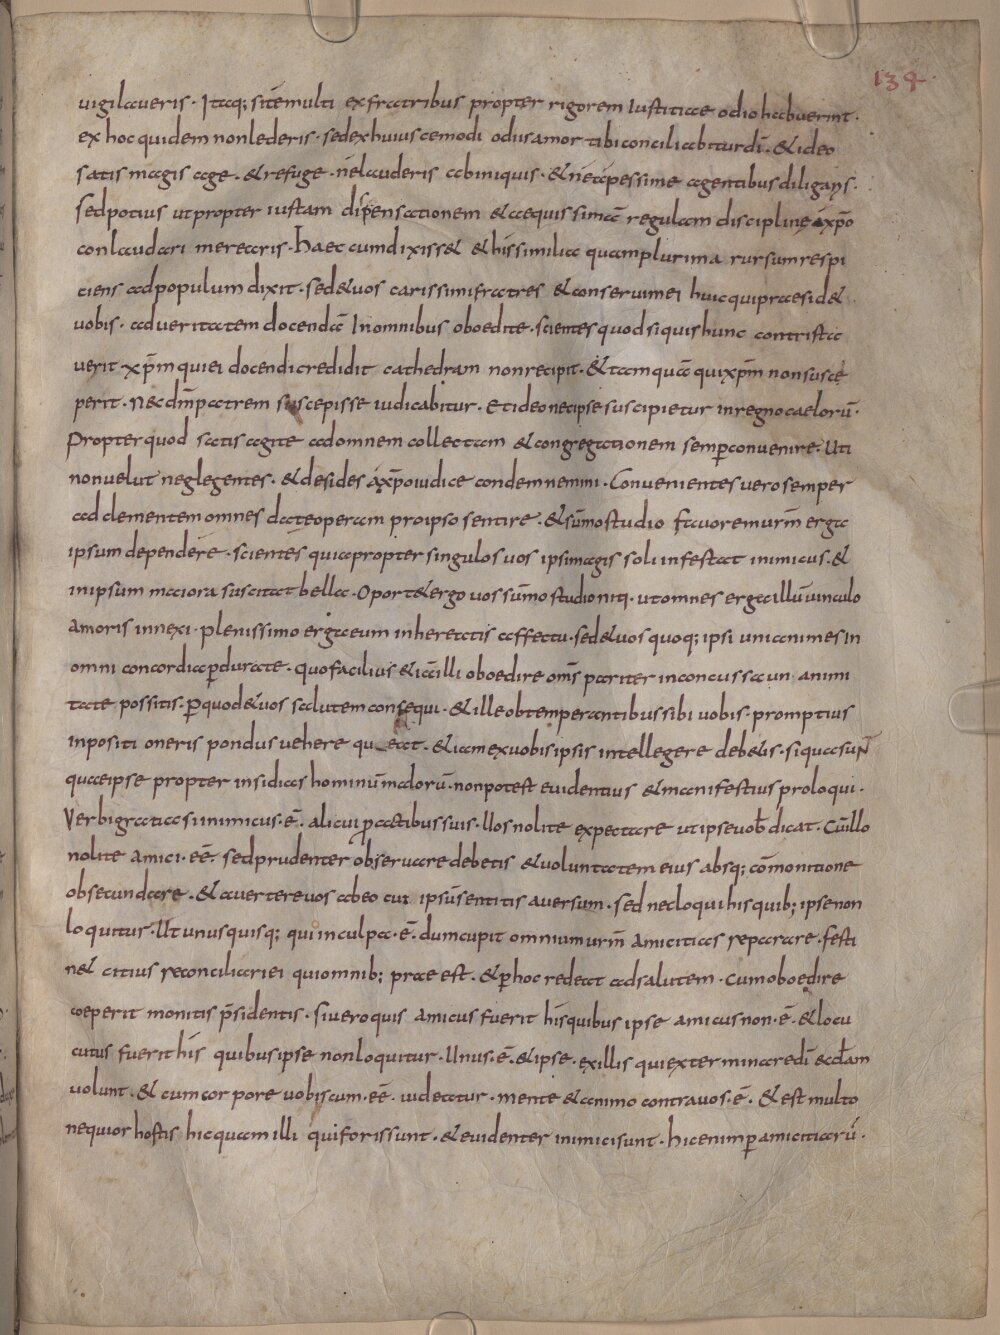 134
uigilaueris. Itaq; si te multi ex fratribus propter rigorem iustitiae odio habuerint.
ex hoc quidem non lederis. sed ex huiuscemodi odiis amor tibi conciliabitur dī. & ideo
satis magis age. & refuge. nel auderis ab iniquis. & ne tā pessime agentibus diligaris.
sed potius ut propter iustam dispensationem & aequissimā regulam discipline a xp̄o
conlaudari merearis. Haec cum dixiss& & his similia quamplurima rursum respi
ciens ad populum dixit. sed & uos carissimi fratres & conserui mei huic qui praesid&
uobis. ad ueritatem docendā In omnibus oboedite. scientes quod si quis hunc contrista
uerit xp̄m qui ei docendi credidit cathedram non recipit. & tamquā qui xp̄m non susce
perit. nec dm̄ patrem suscepisse iudicabitur. Et ideo nec ipse suscipietur in regno caelorū.
Propter quod satis agite ad omnem collectam & congregationem semp conuenire. Uti
non uelut neglegentes. & desides a xp̄o iudice condemnemini. Conuenientes uero semper
ad clementem omnes date operam pro ipso sentire. & sūmo studio fauorem urm̄ erga
ipsum dependere. scientes quia propter singulos uos ipsi magis soli infestat inimicus. &
in ipsum maiora suscitat bella. Oport& ergo uos sūmo studio niti. ut omnes erga illū uinculo
amoris innexi. plenissimo erga eum inheretatis affectu. sed & uos quoq; ipsi unianimes in
omni concordia pdurate. quo facilius & iā illi oboedire om̄s pariter inconcussa un animi
tate possitis. p quod & uos salutem consequi. & ille obtemperantibus sibi uobis. promptius
inpositi oneris pondus uehere qu eat. & iam ex uobis ipsis intellegere deb&is. si qua sunt
quae ipse propter insidias hominū malorū. non potest euidentius & manifestius proloqui.
Verbi gratia si inimicus. ē. alicui p actibus suis. Uos nolite expectare ut ipse uob dicat. Cū illo
nolite amici. eē. sed prudenter obseruare debetis & uoluntatem eius absq; cōmonitione
obsecundare. & auertere uos ab eo cui ipsū sentitis auersum. sed nec loqui his quib; ipse non
loquitur. Ut unusquisq; qui in culpa. ē. dum cupit omnium urm̄ amicitias reparare. festi
n& citius reconciliari ei qui omnib; prae est. & p hoc redeat ad salutem. cum oboedire
coeperit monitis p̄sidentis. si uero quis amicus fuerit his quibus ipse amicus non. ē. & locu
cutus fuerit his quibus ipse non loquitur. Unus. ē. & ipse. ex illis qui exterminare dī eccl̄am
uolunt. & cum corpore uobiscum. eē. uideatur. mente & animo contra uos. ē. & est multo
nequior hostis hic quam illi qui foris sunt. & euidenter inimici sunt. hic enim p amicitiarū.